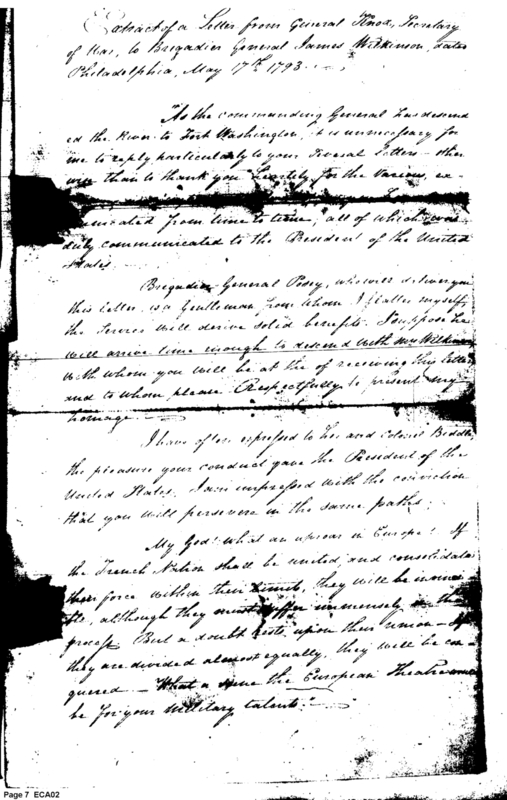 Extract of a Letter from General Knox, Secretary
of War, to Brigadier General James Wilkinson, dated
Philadelphia, May 17th 1793.
"As the commanding General has descend
ed the River to Fort Washington, it is unnecessary for
me to reply particularly to your several letters – other
wise than to thank you heartily for the various, ex-
municated from time to time, all of which was
duly communicated to the President of the United
States.
Brigadier General Posey, who will deliver you
this letter, is a Gentleman from whom I flatter myself
the Service will derive solid benefits. I suppose he
will arrive time enough to descend with Mrs Wilkinson
with whom you will be at the of receiving this letter
and to whom please Respectfully to present my
homage —
I have often expressed to her and Colonel Biddle,
the pleasure your conduct gave the President of the
United States. I am impressed with the conviction
that you will persevere in the same paths.
My God! what an uproar in Europe! If
the French Nation shall be united, and consolidate
their force within their limits, they will be
ble, although they must suffer immensely in the
process. But a doubt rests upon their union – If
they are divided almost equally, they will be con-
quered — What a the European Theatre
be for your military talents."
Page 7 ECA02